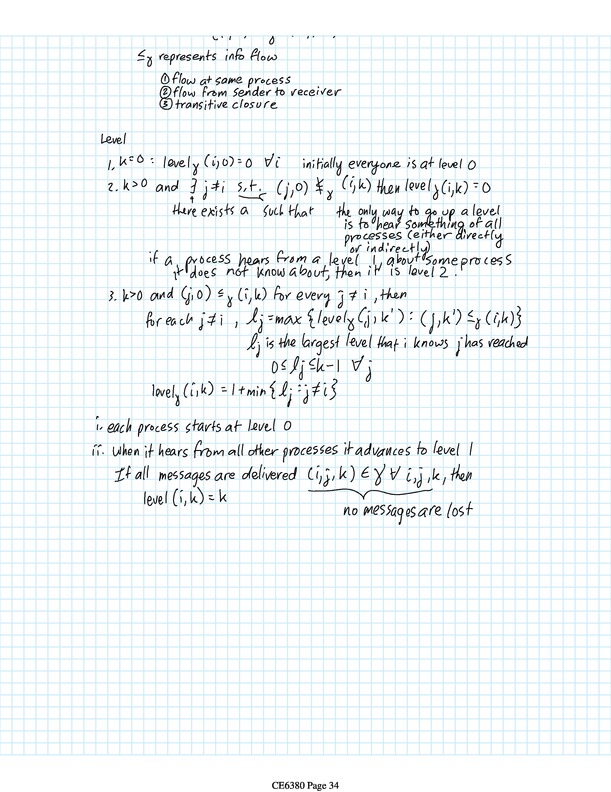 ≤γ represents info flow
① flow at same process
② flow from sender to receiver
③ transitive closure
Level
1. k=0 : levelγ (i,0)=0 ∀i initially everyone is at level 0
2. k>0 and ∃ j≠i s.t. (j,0) ≰γ (i,k) then levelγ(i,k)=0
there exists a such that the only way to go up a level
is to hear something of all
processes (either directly
or indirectly)
if a process hears from a level 1, about some process
it does not know about, then it is level 2.
3. k>0 and (j,0) ≤γ (i,k) for every j≠i, then
for each j≠i, lj=max{levelγ(j,k') : (j,k') ≤γ (i,k)}
lj is the largest level that i knows j has reached
0≤lj≤k-1 ∀j
levelγ(i,k) = 1+min{lj : j≠i}
i. each process starts at level 0
ii. when it hears from all other processes it advances to level 1
If all messages are delivered (i,j,k) ∈ γ ∀ i,j,k, then
level(i,k)=k
no messages are lost
CE6380 Page 34